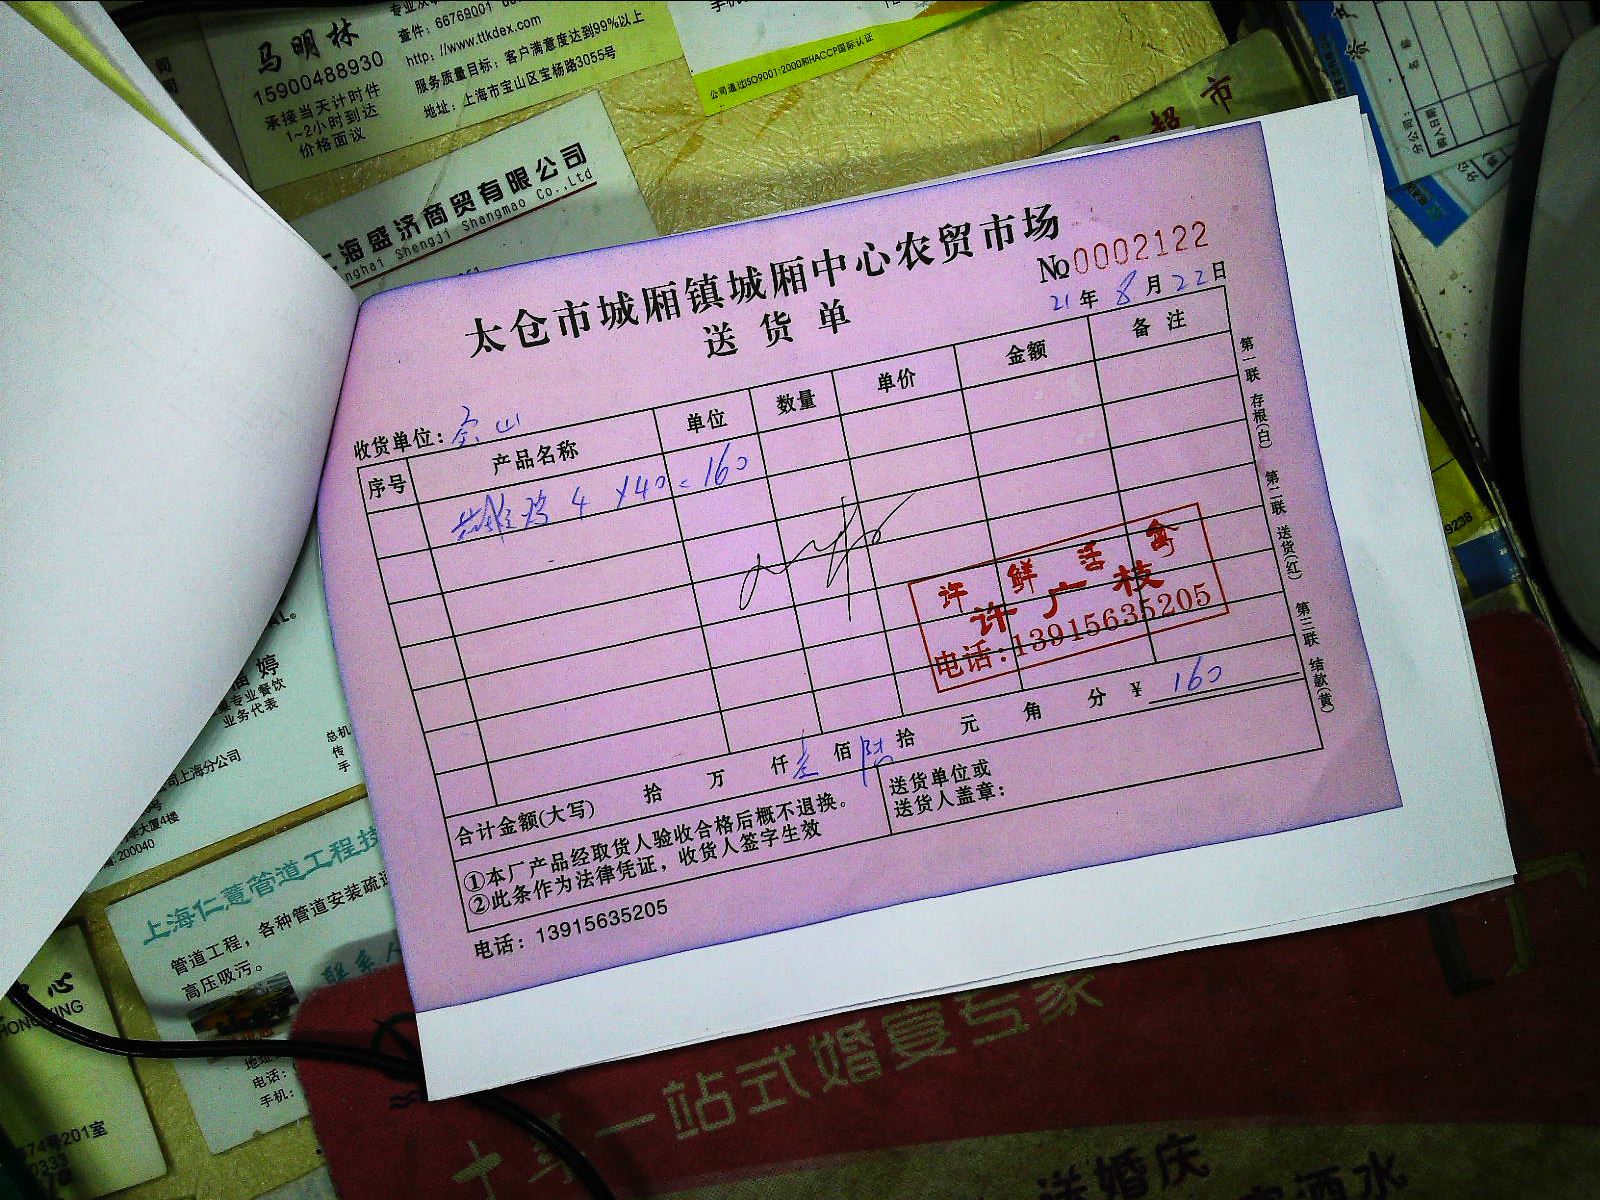 马明林
15900488930
承接当天计时件
1~2小时到达
价格面议
查件: 66769001
http: //www.ttkdex.com
服务质量目标: 客户满意度达到99%以上
地址: 上海市宝山区宝杨路3055号
公司通过ISO9001:2000和HACCP国际认证
超市
上海盛济商贸有限公司
Shanghai Shengji Shangmao Co.,Ltd
太仓市城厢镇城厢中心农贸市场
送货单
№0002122
21年8月22日
收货单位: 宝山
序号 产品名称 单位 数量 单价 金额 备注
4 ×40=160
许鲜活禽
许广枝
电话:13915635205
合计金额(大写) 拾 万 仟 壹 佰 陆 拾 元 角 分 ¥ 160
①本厂产品经取货人验收合格后概不退换。
②此条作为法律凭证，收货人签字生效
送货单位或
送货人盖章:
电话: 13915635205
第一联 存根(白) 第二联 送货(红) 第三联 结款(黄)
婷
专业餐饮
业务代表
总机
传
手
司上海分公司
大厦4楼
200040
上海仁薏管道工程技
管道工程，各种管道安装疏通
高压吸污。
联系人
地址
电话:
手机:
中心
HONGXING
74号201室
0333
9238
十年一站式婚宴专家
送婚庆
酒水